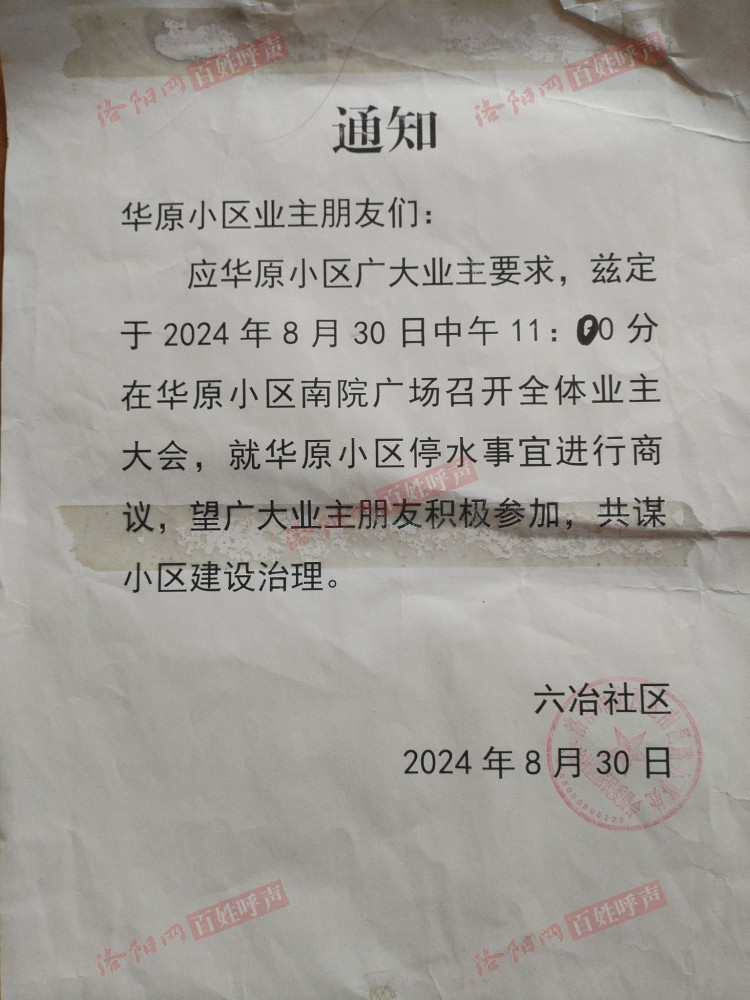 洛阳网 百姓呼声
洛阳网 百姓呼声
通知
华原小区业主朋友们：
应华原小区广大业主要求，兹定
于 2024 年 8 月 30 日中午 11：00 分
在华原小区南院广场召开全体业主
大会，就华原小区停水事宜进行商
议，望广大业主朋友积极参加，共谋
小区建设治理。
洛阳网 百姓呼声
六冶社区
2024 年 8 月 30 日
洛阳网 百姓呼声
洛阳网 百姓呼声